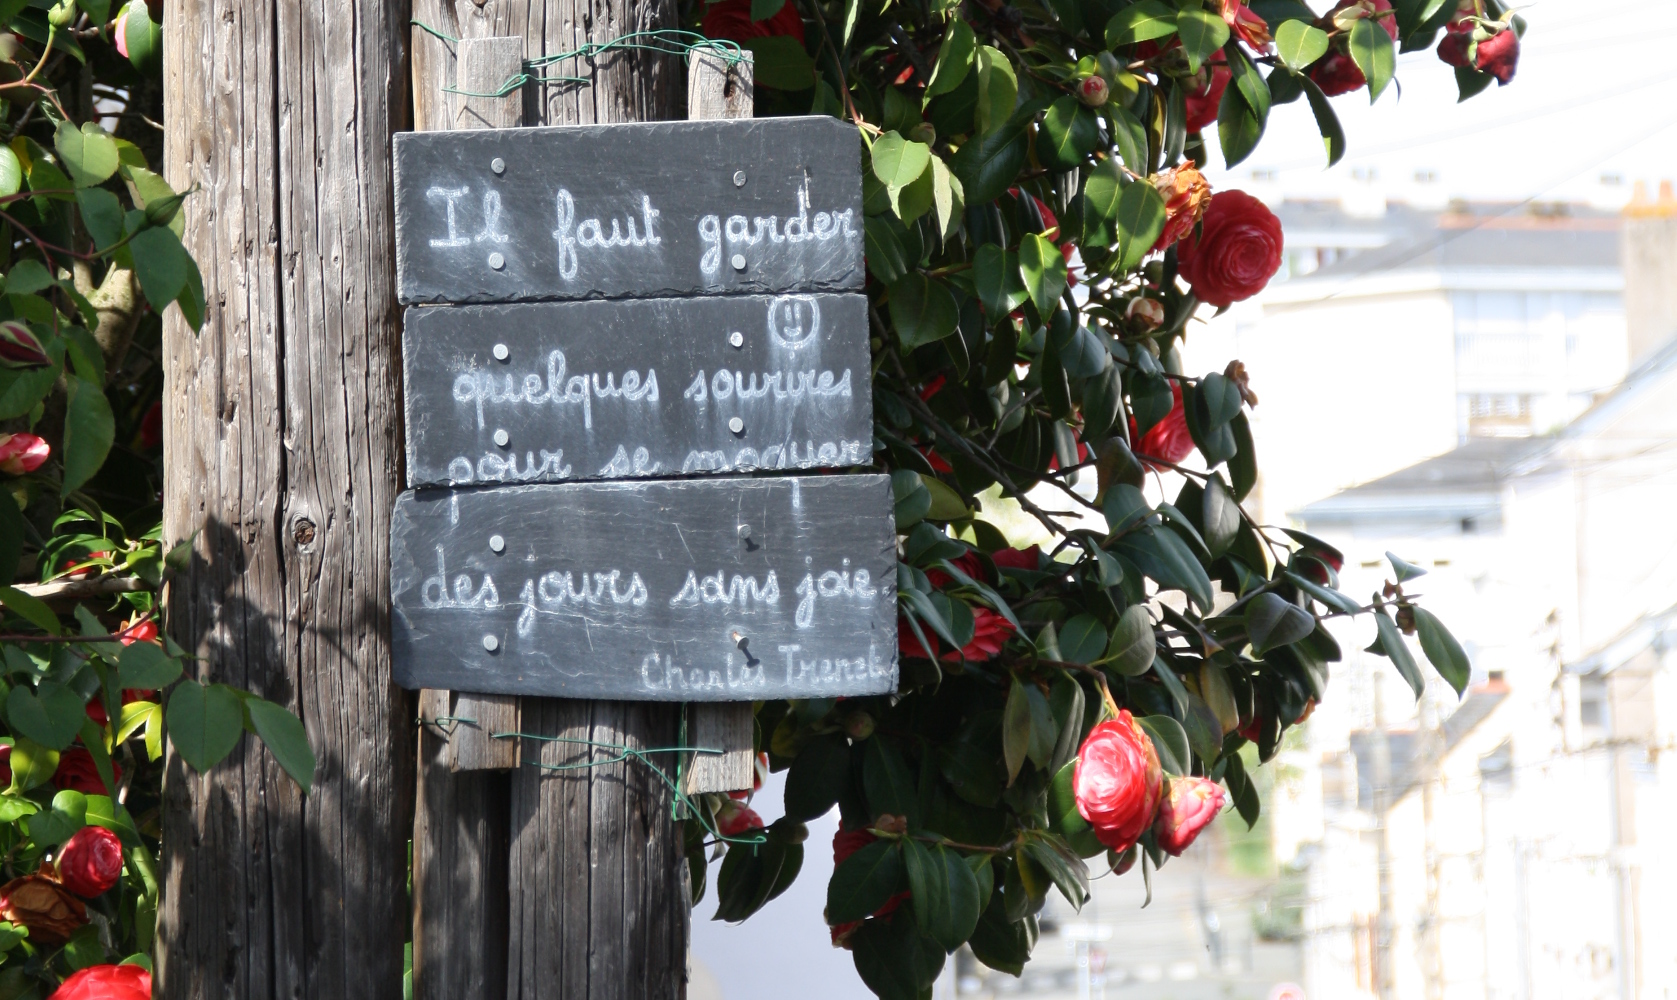 Il faut garder
quelques sourires
pour se moquer
des jours sans joie.
Charles Trenet